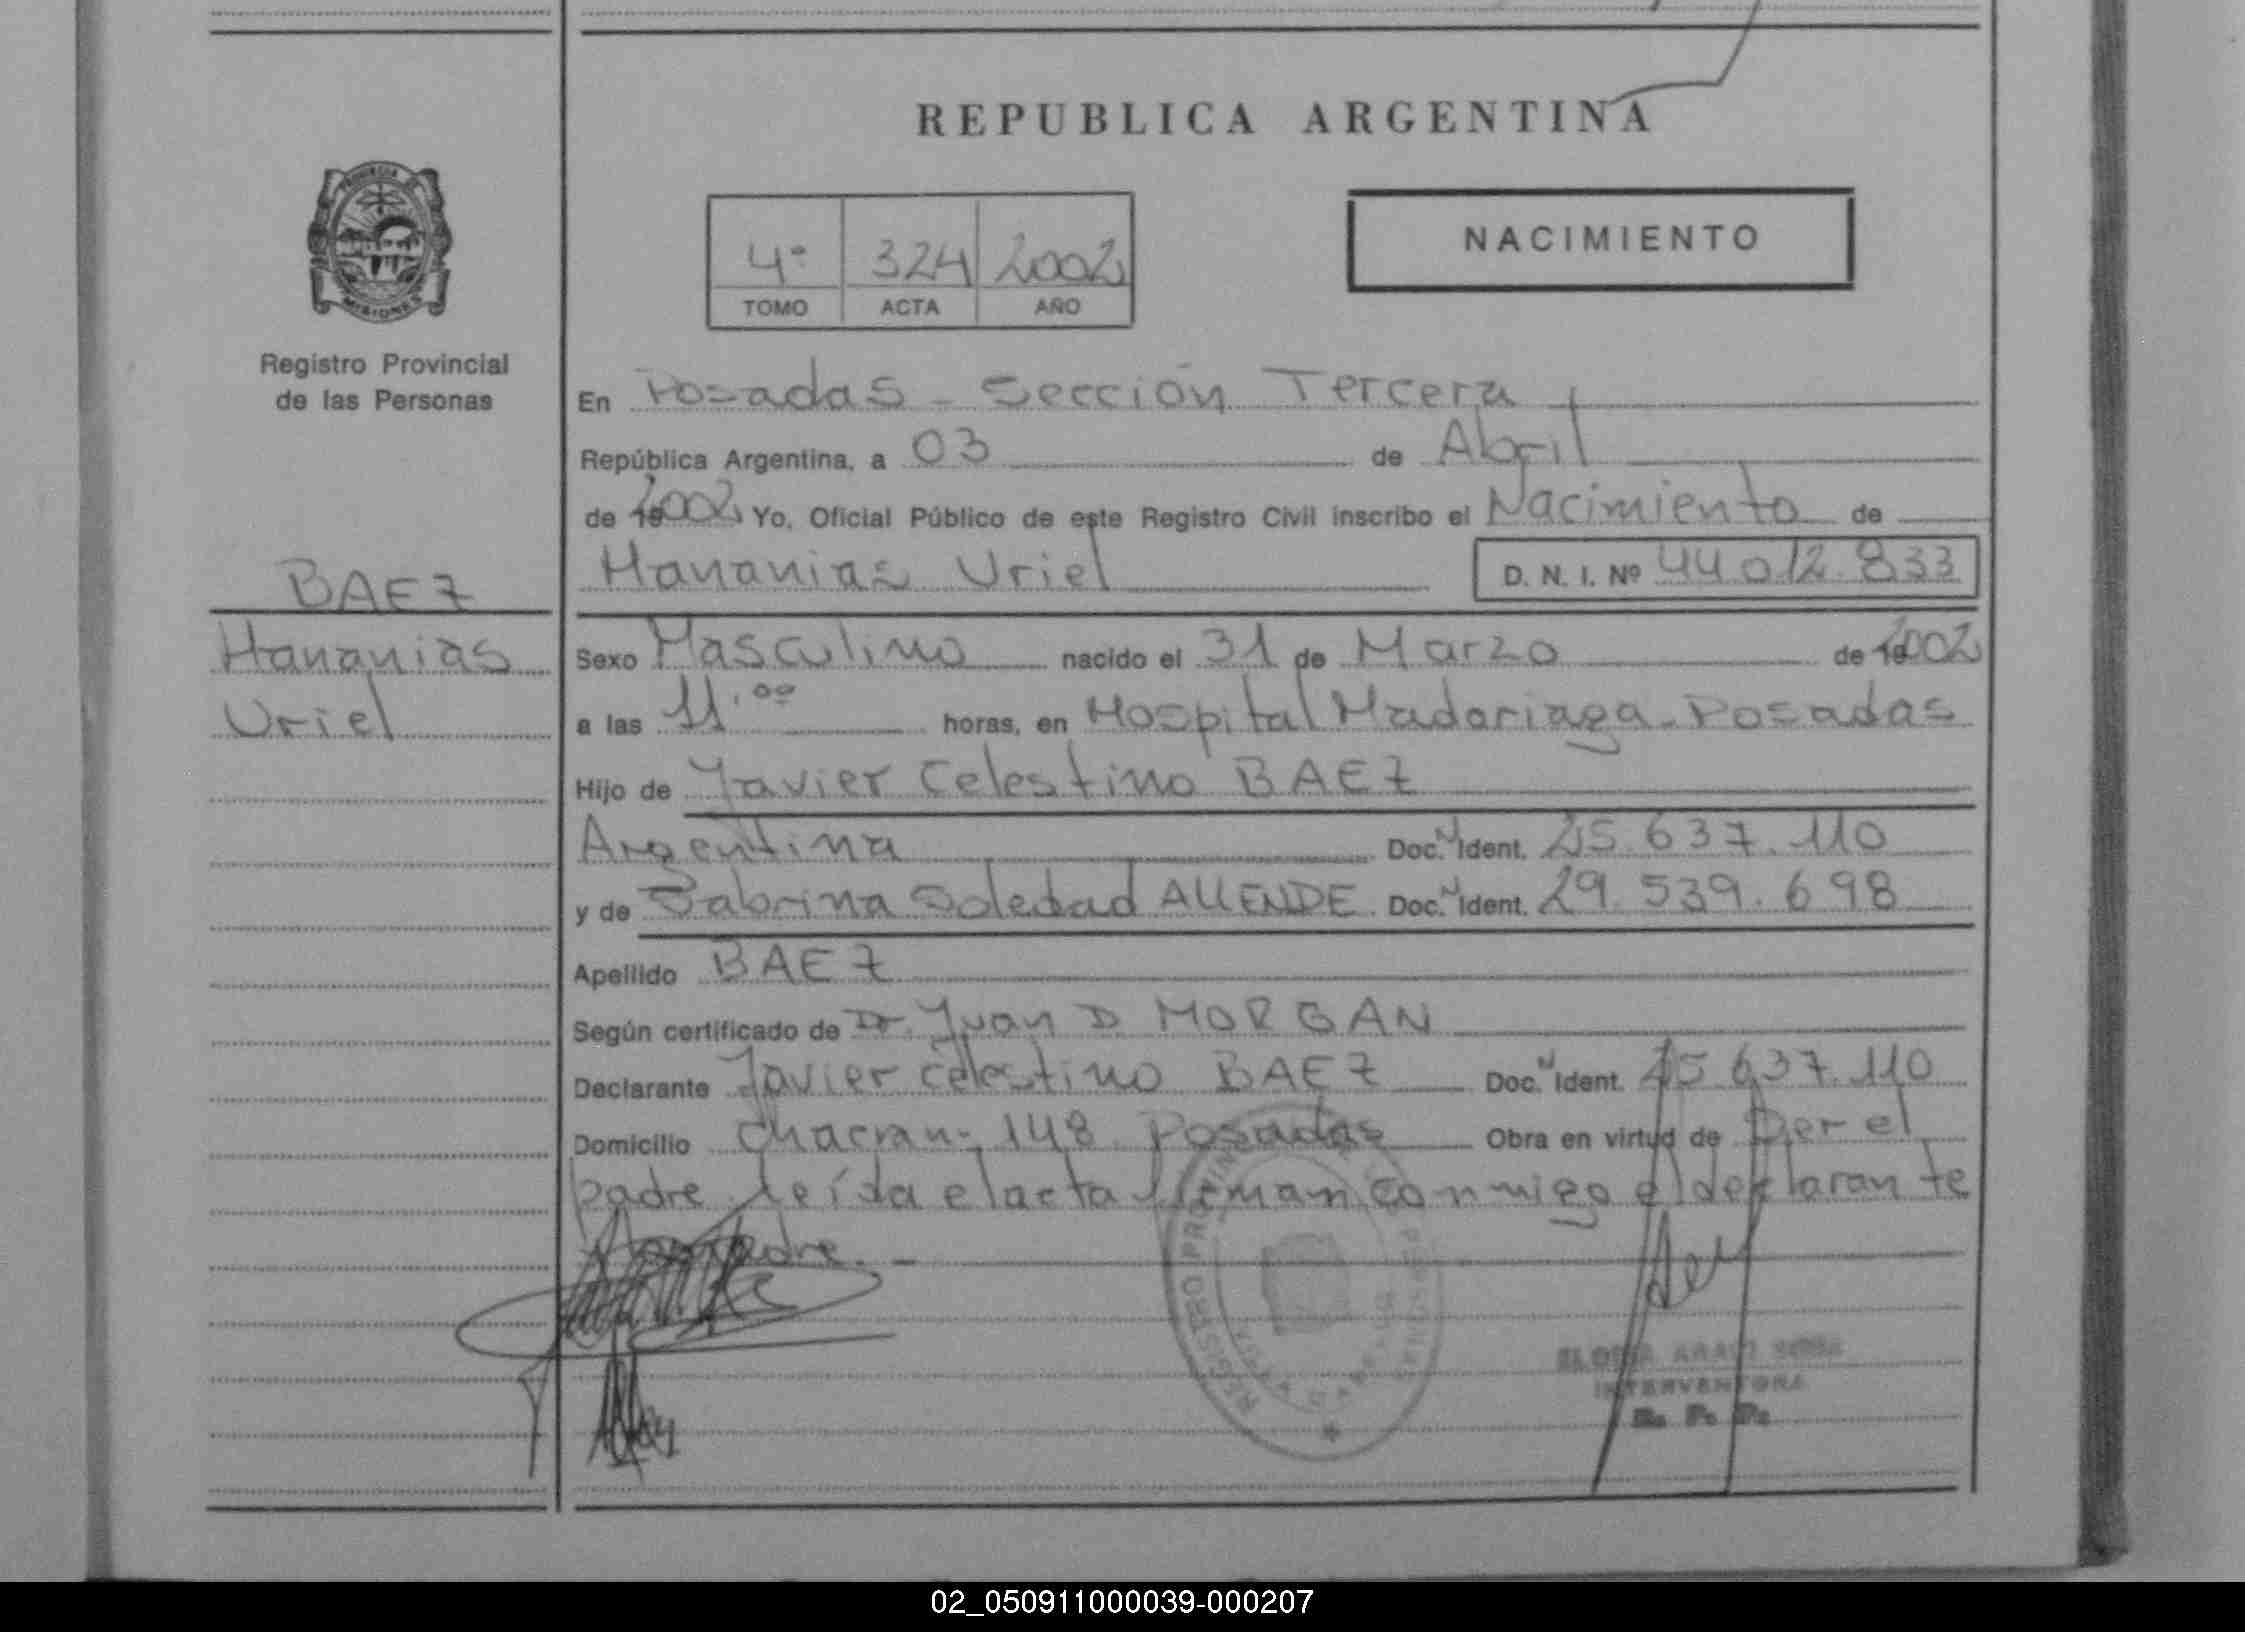 REPUBLICA ARGENTINA
PROVINCIA DE
MISIONES
Registro Provincial
de las Personas
NACIMIENTO
4º 324 2002
TOMO ACTA AÑO
En Posadas - Sección Tercera
República Argentina, a 03 de Abril
de 2002 Yo, Oficial Público de este Registro Civil inscribo el Nacimiento de
Hananias Uriel D. N. I. Nº 44.012.833
BAEZ
Hananias
Uriel
Sexo Masculino nacido el 31 de Marzo de 2002
a las 11.00 horas, en Hospital Madariaga - Posadas
Hijo de Javier Celestino BAEZ
Argentina Doc. N Ident. 25.637.110
y de Sabrina Soledad ALLENDE Doc. N Ident. 29.539.698
Apellido BAEZ
Según certificado de Dr. Juan D MORGAN
Declarante Javier Celestino BAEZ Doc. N Ident. 25.637.110
Domicilio Chacra n- 148 Posadas Obra en virtud de Ser el
padre leída el acta firman conmigo el declarante
madre. -
REGISTRO PROVINCIAL DE LAS PERSONAS
INTERVENTORA
R. P. P.
02_050911000039-000207